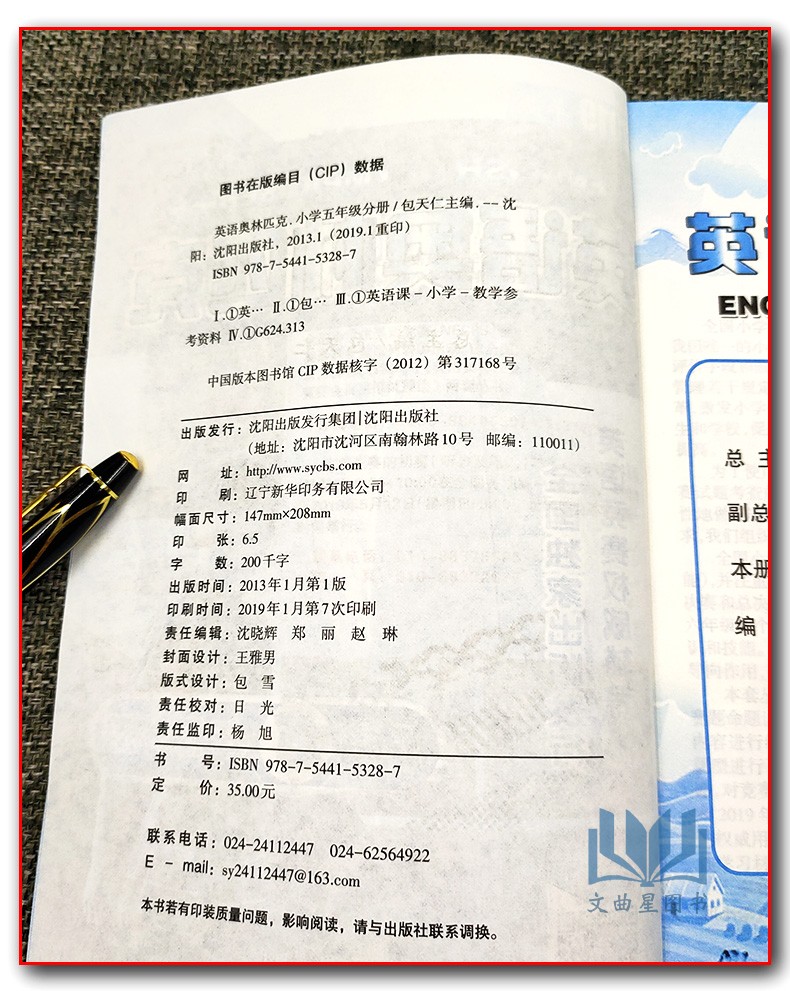 图书在版编目（CIP）数据
英语奥林匹克.小学五年级分册/包天仁主编.--沈
阳：沈阳出版社，2013.1（2019.1重印）
ISBN 978-7-5441-5328-7
Ⅰ.①英… Ⅱ.①包… Ⅲ.①英语课－小学－教学参
考资料 Ⅳ.①G624.313
中国版本图书馆CIP数据核字（2012）第317168号
出版发行：沈阳出版发行集团|沈阳出版社
（地址：沈阳市沈河区南翰林路10号 邮编：110011）
网 址：http://www.sycbs.com
印 刷：辽宁新华印务有限公司
幅面尺寸：147mm×208mm
印 张：6.5
字 数：200千字
出版时间：2013年1月第1版
印刷时间：2019年1月第7次印刷
责任编辑：沈晓辉 郑 丽 赵 琳
封面设计：王雅男
版式设计：包 雪
责任校对：日 光
责任监印：杨 旭
书 号：ISBN 978-7-5441-5328-7
定 价：35.00元
联系电话：024-24112447 024-62564922
E - mail：sy24112447@163.com
本书若有印装质量问题，影响阅读，请与出版社联系调换。
英
ENG
总 主
副总
本册
编
文曲星图书